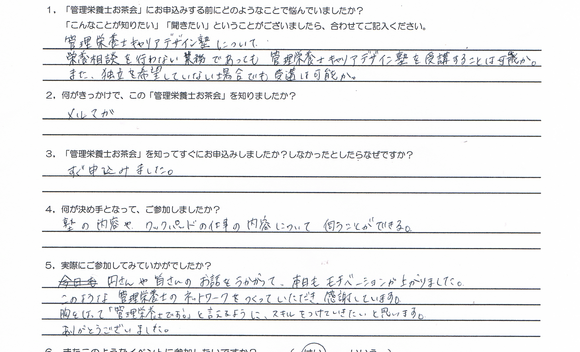 1．「管理栄養士お茶会」にお申込みする前にどのようなことで悩んでいましたか？
「こんなことが知りたい」「聞きたい」ということがございましたら、合わせてご記入ください。
管理栄養士キャリアデザイン塾について
栄養相談を行わない業務であっても 管理栄養士キャリアデザイン塾を受講することは可能か。
また、独立を希望していない場合でも受講は可能か。
2．何がきっかけで、この「管理栄養士お茶会」を知りましたか？
メルマガ
3．「管理栄養士お茶会」を知ってすぐにお申込みしましたか？しなかったとしたらなぜですか？
すぐ申込みました。
4．何が決め手となって、ご参加しましたか？
塾の内容や クックパッドの仕事の内容について 伺うことができる。
5．実際にご参加してみていかがでしたか？
円さんや皆さんのお話をうかがって、本日もモチベーションが上がりました。
このような管理栄養士のネットワークをつくっていただき感謝しています。
胸をはって「管理栄養士である」と言えるように、スキルをつけていきたいと思います。
ありがとうございました。
6．またこのようなイベントに参加したいですか？ （ はい ・ いいえ ）